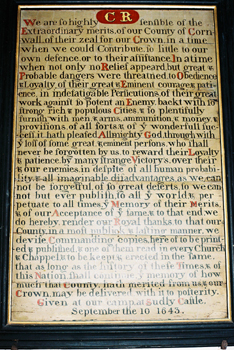 C R
We are so highly sensible of the
Extraordinary merits of our County of Corn-
wall, of their zeal for our Crown, in a time
when we could Contribute so little to our
own defence or to their assistance, In a time
when not only no Relief appeared but great &
Probable dangers were threatned to Obedience
& Loyalty, of their great & Eminent courage & patie-
nce, in indefatigable Perticutions of their great
work against so potent an Enemy, backt with so
strong rich & populous Cities, & so plentifully
with men & arms, ammunition & money &
provisions of all sorts, of ye wonderfull su-
it hath pleased Allmighty God, through with
ye loss of some great & eminent persons, who shall
never be forgotten by us to reward their Loyalty
& patience, by many strange Victorys, over their &
our enemies, in despite of all human probab-
ility, & all imaginable disadvantages, as we can-
not be forgetfull of so great deserts, so we can
not but ever publish to all ye world, & per-
petuate to all times, ye Memory of their Merits,
& of our Acceptance of ye same, & to that end we
do hereby, render our Royal thanks to that our
County, in a most publick & lasting manner, we
devise, Commanding Copies, here of to be print-
ed & published, & one of them read in every Church
& Chappell, & to be kept & erected in the same,
that as long as the history of these Times, & of
this Nation shall continue, ye memory of how
much that County, hath merited from us, & our
Crown, may be delivered with it to posterity.
Given at our camp at Sudly Castle,
September the 10 1643.